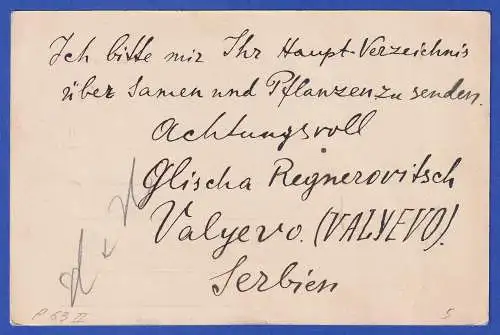 Ich bitte mir Ihr Haupt-Verzeichnis
über Samen und Pflanzen zu senden.
Achtungsvoll
Glischa Regnerovitsch
Valyevo. (VALYEVO).
Serbien
P 53 II
5